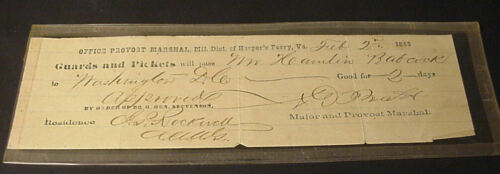 OFFICE PROVOST MARSHAL, Mil. Dist. of Harper's Ferry, Va. Feb 2nd 1865
Guards and Pickets will pass Wm Hamlin Babcock
to Washington D.C. Good for 2 days
Approved
BY ORDER OF BR. G. GEN. STEVENSON,
Residence
Major and Provost Marshal.
A.A.A.G.